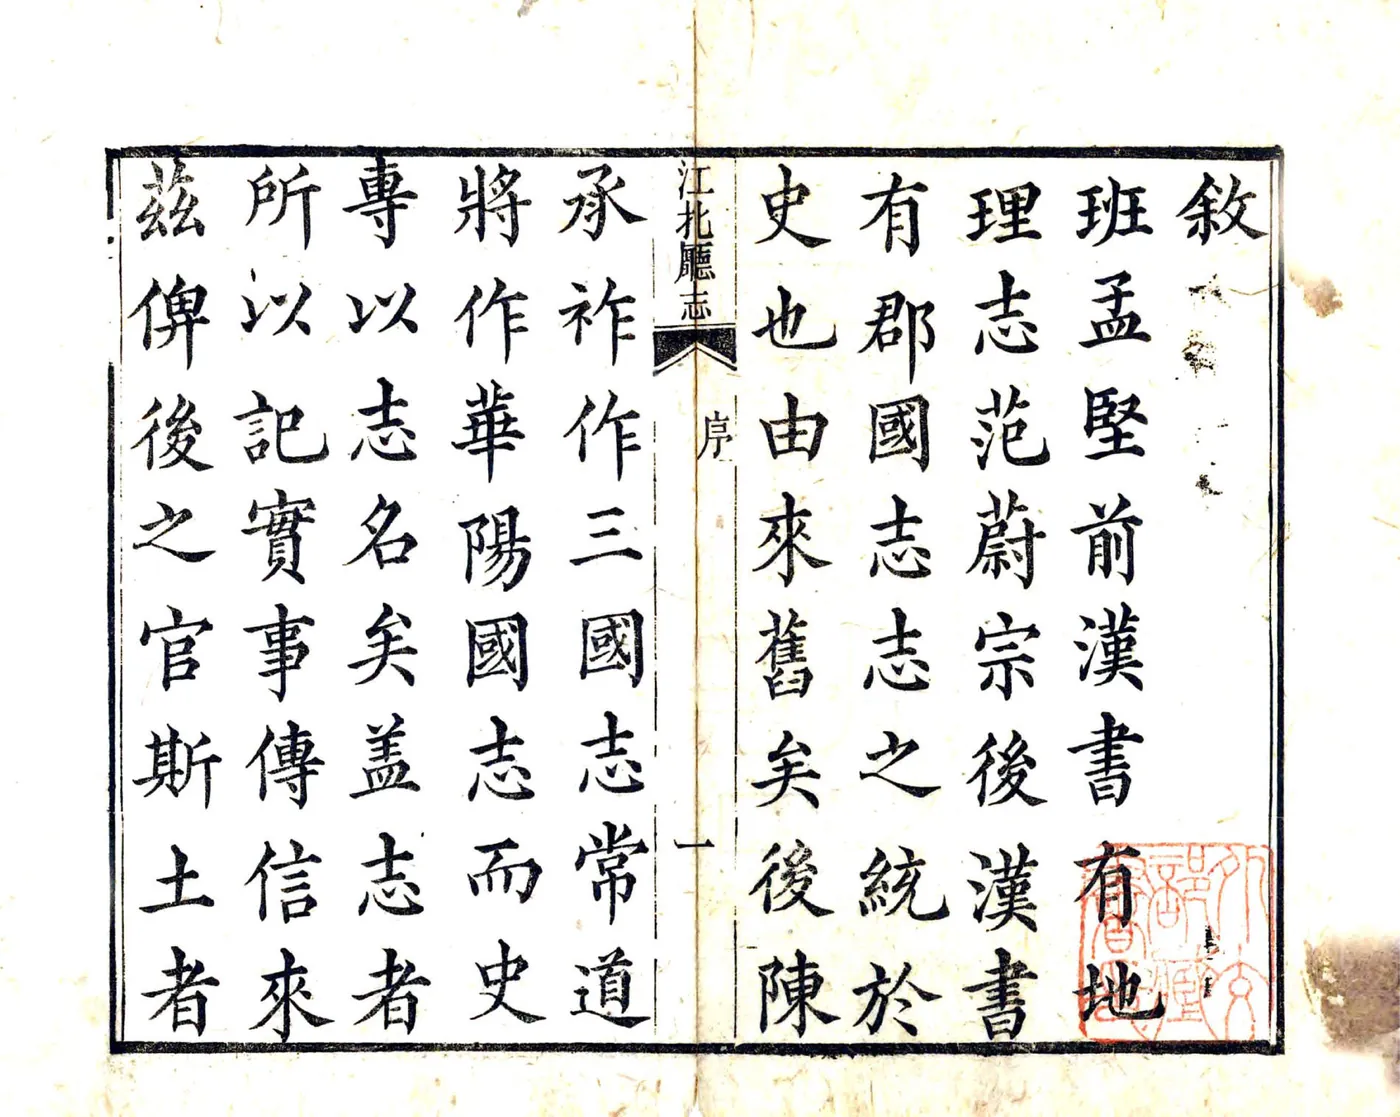 敘
班孟堅前漢書有地
理志范蔚宗後漢書
有郡國志志之統於
史也由來舊矣後陳
江北廳志
序
一
承祚作三國志常道
將作華陽國志而史
專以志名矣盖志者
所以記實事傳信來
茲俾後之官斯土者